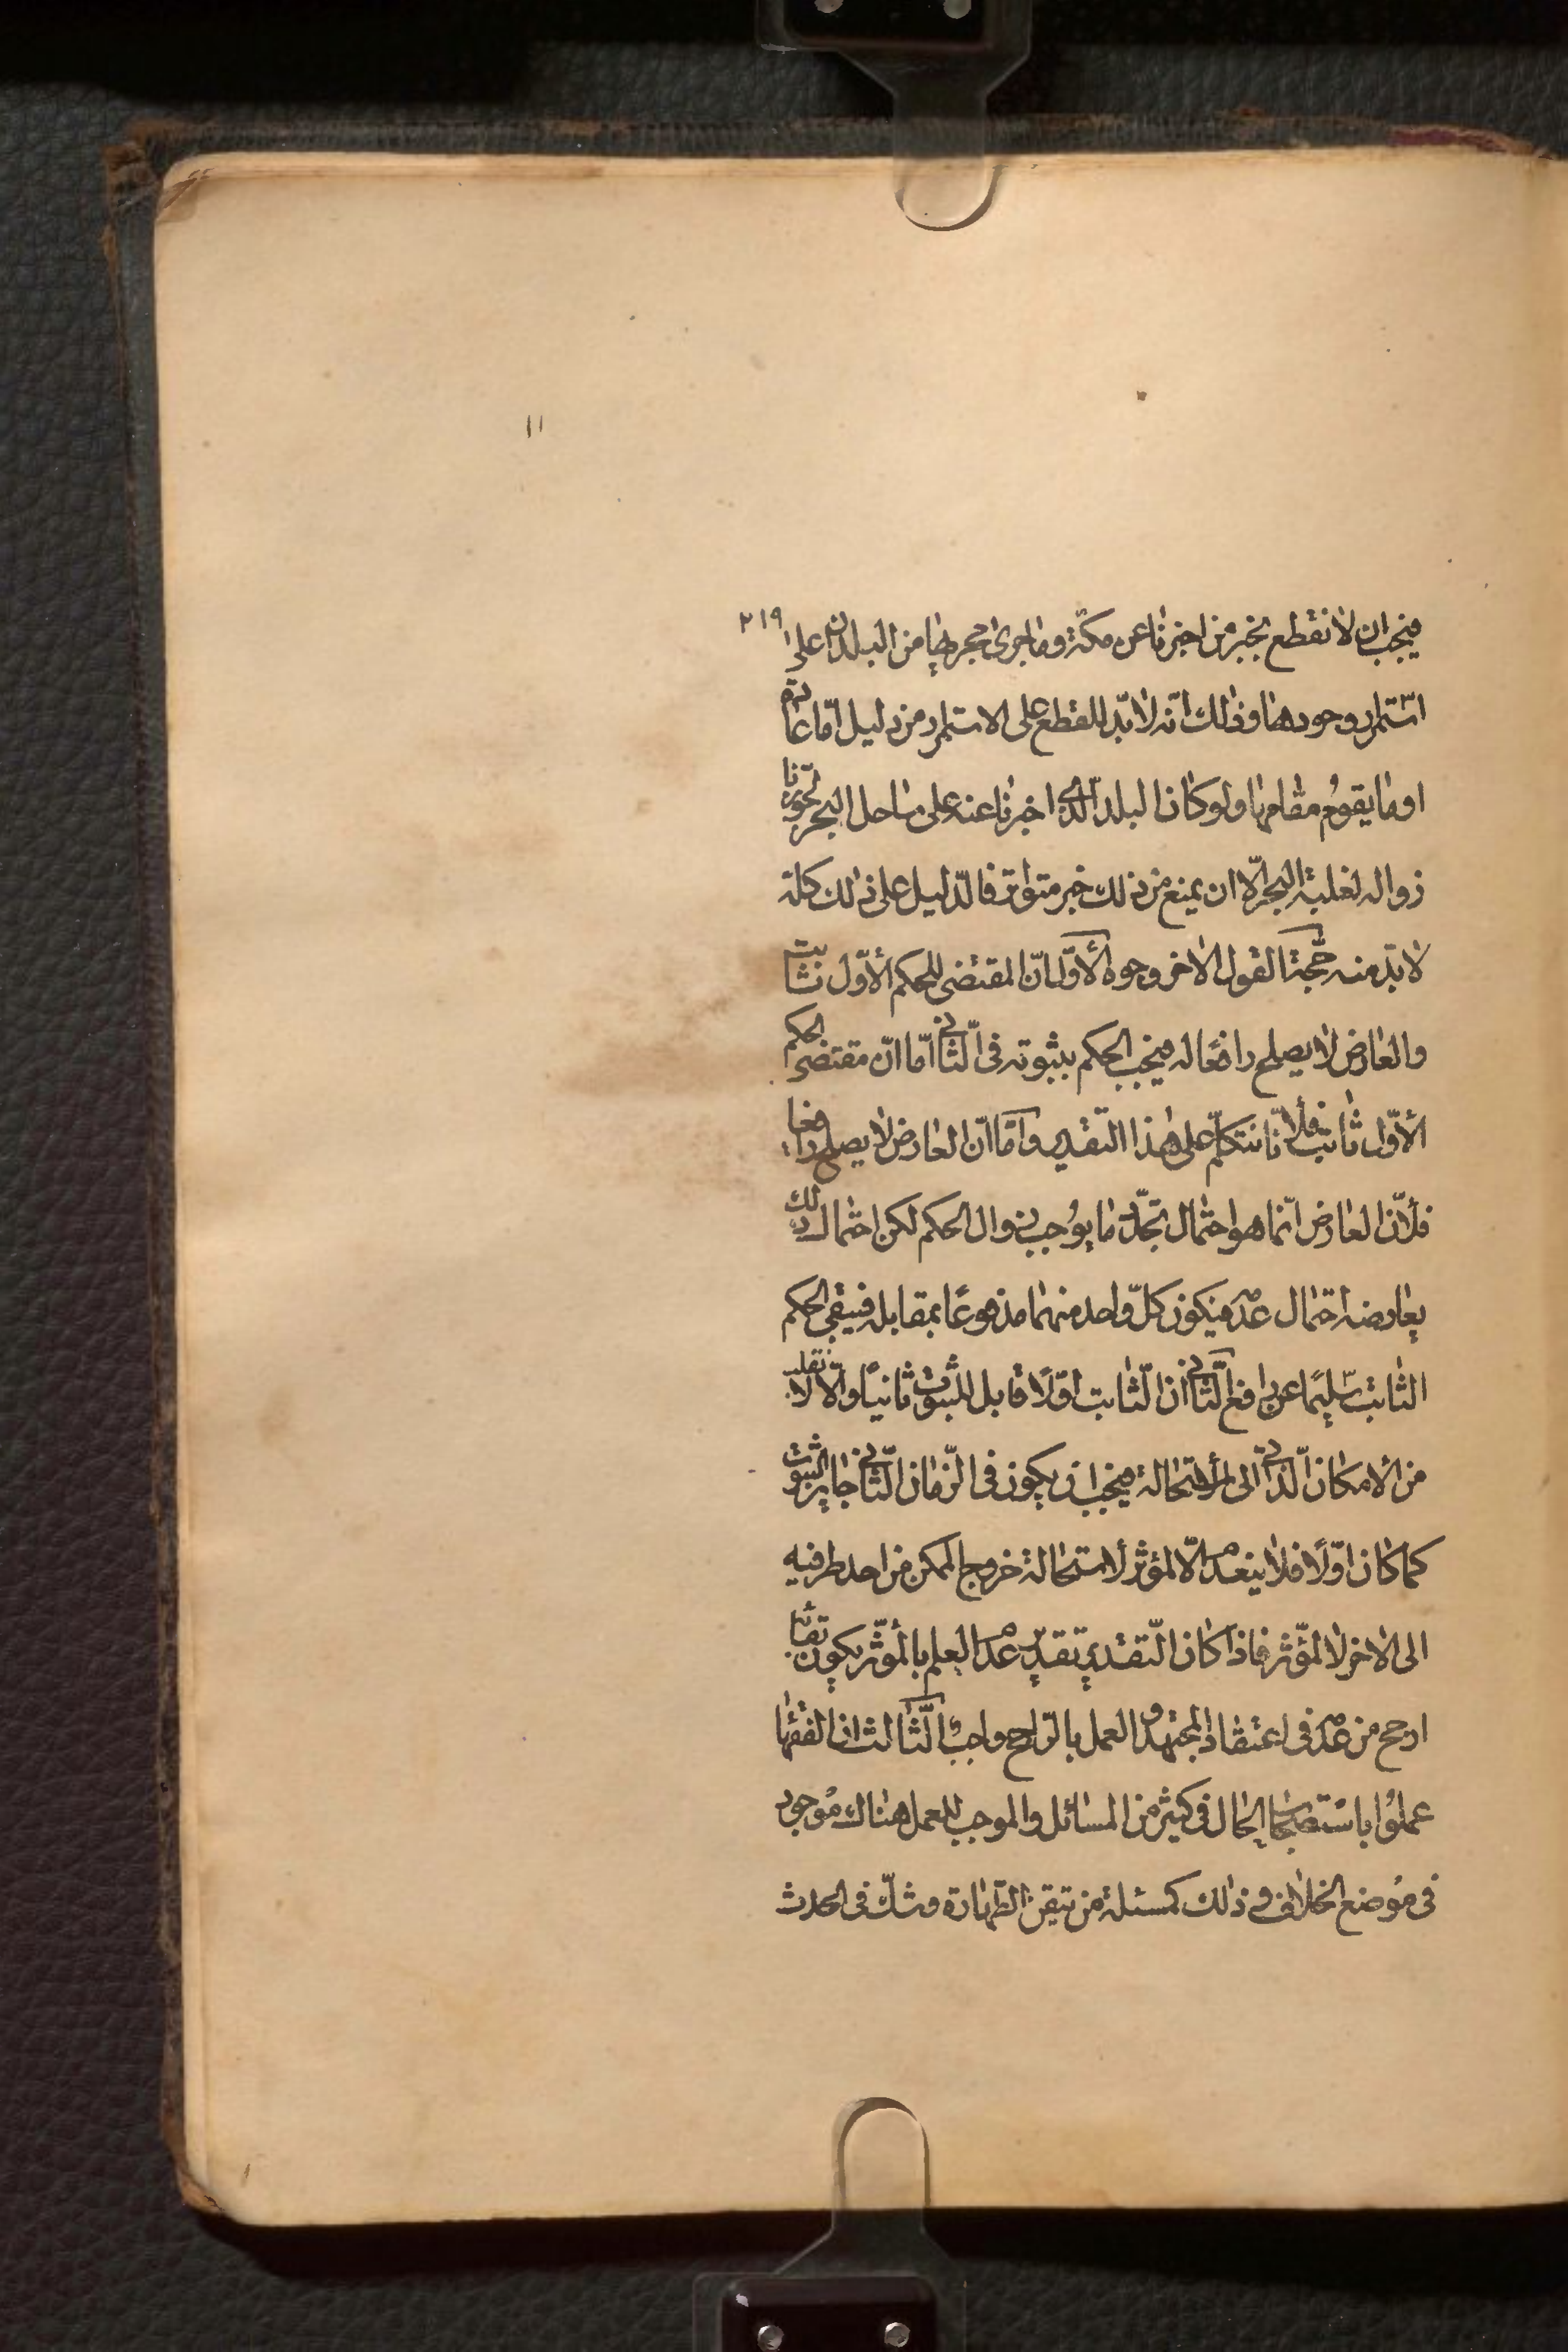 ٢١٩
١١
فيجب ان لا نقطع بخبر من اخبرنا عن مكّة وما جرى مجرىها من البلدان على
استمرار وجودها وذلك انّه لا بدّ للقطع على الاستمرار من دليل امّا عادة
او ما يقوم مقامها ولو كان البلد الّذى اخبرنا عنه على ساحل البحر لجوّزنا
زواله لغلبة البحر الّا ان يمنع من ذلك خبر متواتر فالدّليل على ذلك كلّه
لا بدّ منه حجّة القول الاخر وجوه الأوّل انّ المقتضى للحكم الأوّل ثابت
والعارض لا يصلح رافعًا له فيجب الحكم بثبوته فى الثّانى امّا انّ مقتضى الحكم
الأوّل ثابت فلأنّا نتكلّم على هذا التّقدير وامّا انّ العارض لا يصلح رافعا
فلأنّ العارض انّما هو احتمال تجدّد ما يوجب زوال الحكم لكن احتمال ذلك
يعارضه احتمال عدمه فيكون كلّ واحد منهما مدفوعًا بمقابله فيبقى الحكم
الثابت سليمًا عن رافع الثّانى انّ الثّابت اوّلًا قابل للثّبوت ثانيًا والّا لانقلب
من الأمكان الّذاتى الى الأستحالة فيجب ان يكون فى الزّمان الثّانى جايز الثّبوت
كما كان اوّلًا فلا ينعدم الّا لمؤثر لأستحالة خروج الممكن من احد طرفيه
الى الاخر لا لمؤثّر فاذا كان التّقدير تقدير عدم العلم بالمؤثّر يكون بقائه
ارجح من عدمه فى اعتقاد المجتهد والعمل بالرّاجح واجب الثّالث ان الفقهاء
عملوا باستصحاب الحال فى كثير من المسائل والموجب للعمل هناك موجود
فى موضع الخلاف وذلك كمسئلة من تيقن الطّهارة وشكّ فى الحدث